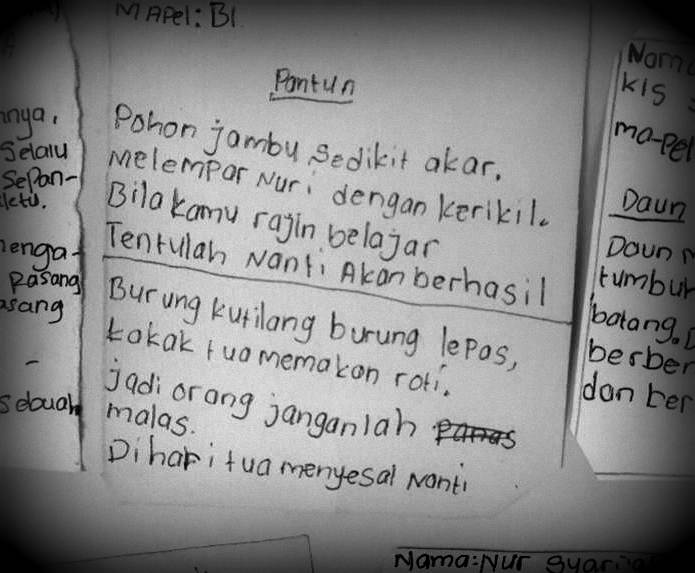 MAPel: BI
Pantun
Pohon jambu sedikit akar.
Melempar Nuri dengan kerikil.
Bila kamu rajin belajar
Tentulah Nanti Akan berhasil
Burung kutilang burung lepas,
kakak tua memakan roti.
jadi orang janganlah panas
malas.
Dihari tua menyesal Nanti
nnya.
Selalu
Sepan-
menga-
Pasang
asang
-
sebuah
Nama
kis
ma-pel
Daun
Daun
tumbuh
batang.
berber
dan ber
Nama: Nur Syari